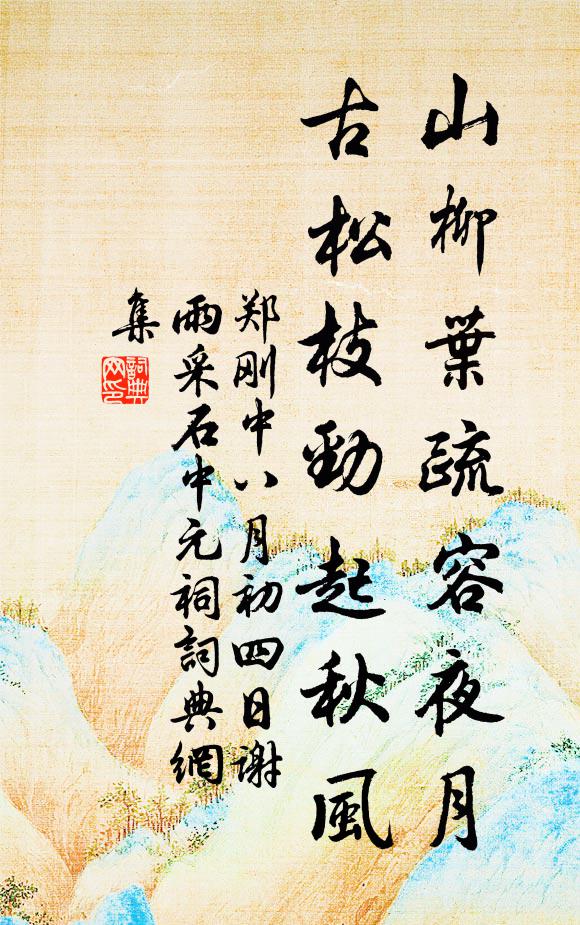 山柳葉疏容夜月
古松枝勁起秋風
郑刚中八月初四日谢
雨采石中元祠詞典網
集
詞典
网印